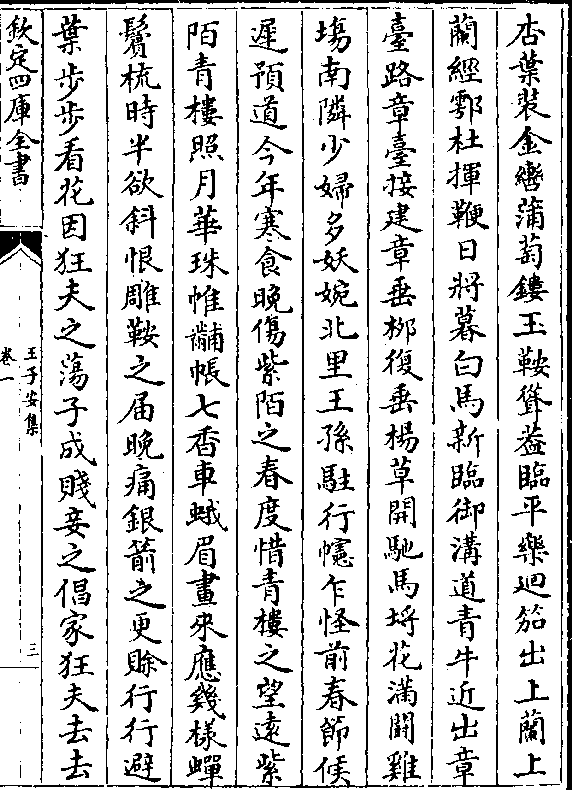 杏葉裝金轡蒲萄鏤玉鞍聳葢臨平樂迴笳出上蘭上
蘭經鄠杜揮鞭日將暮白馬新臨御溝道青牛近出章
臺路章臺接建章垂栁復垂楊草開馳馬埒花滿鬭雞
塲南隣少婦多妖婉北里王孫駐行幰乍怪前春節候
遲預道今年寒食晚傷紫陌之春度惜青樓之望遠紫
陌青樓照月華珠帷黼帳七香車蛾眉畫來應幾様蟬
鬢梳時半欲斜恨雕鞍之届晚痛銀箭之更賒行行避
葉步步看花因狂夫之蕩子成賤妾之倡家狂夫去去
欽定四庫全書
王子安集
卷一
三